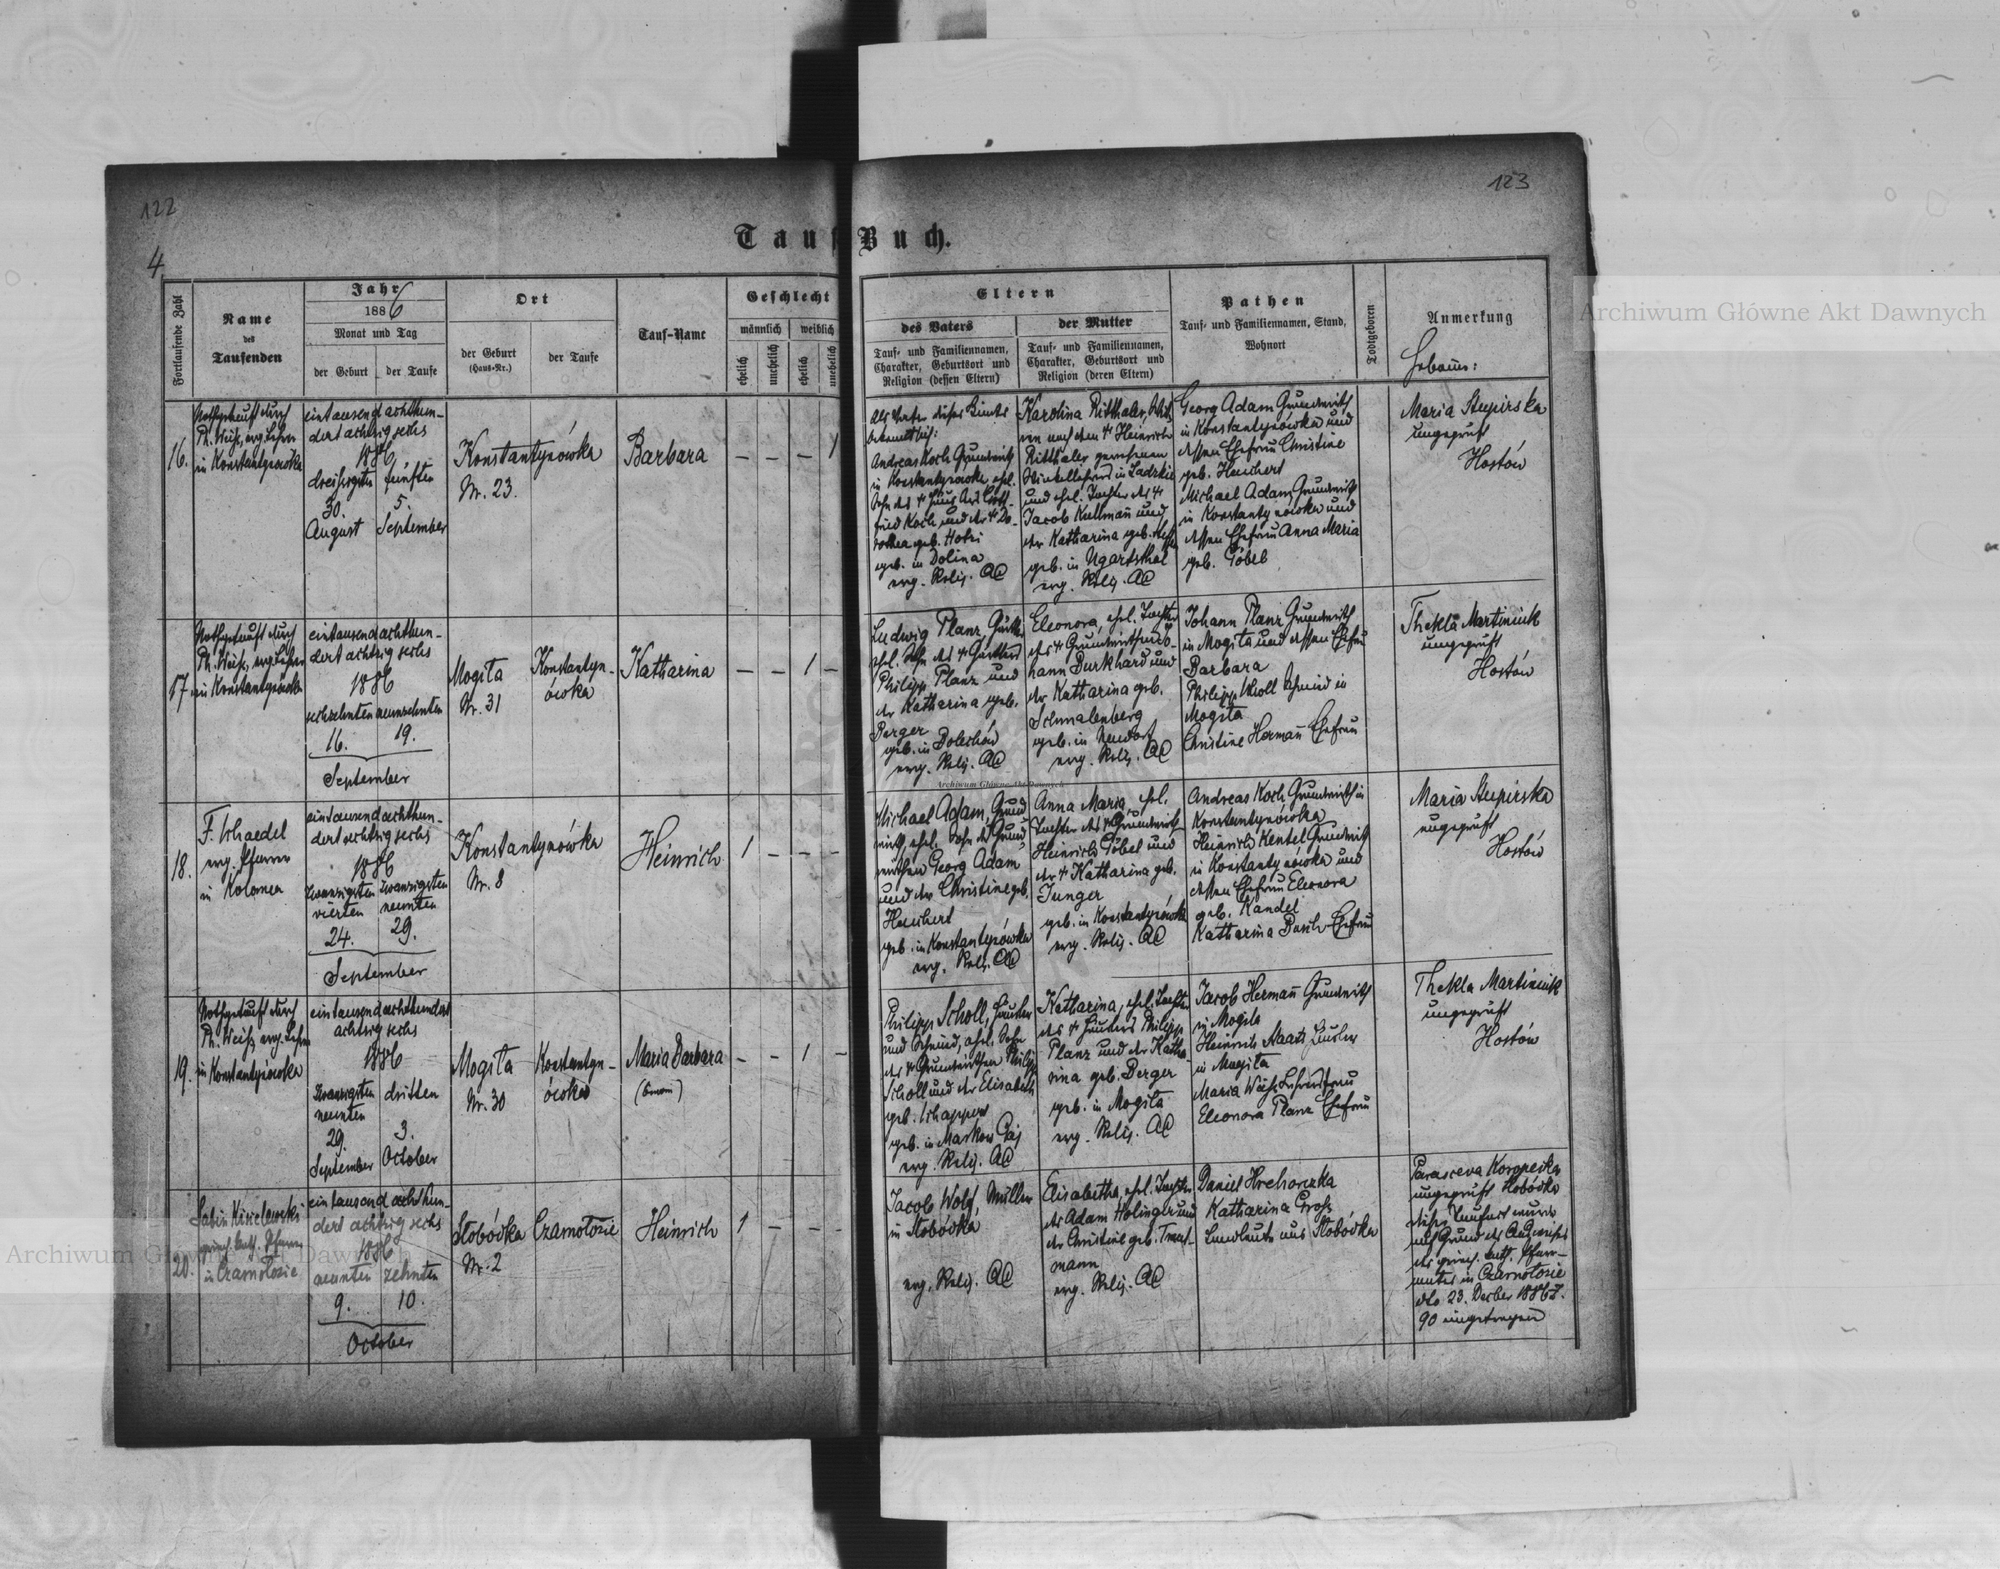 122
123
4
Tauf Buch.
Fortlaufende Zahl
Name
des
Taufenden
Jahr
1886
Monat und Tag
der Geburt
der Taufe
Ort
der Geburt
(Haus-Nr.)
der Taufe
Tauf-Name
Geschlecht
männlich
weiblich
ehelich
unehelich
ehelich
unehelich
Eltern
des Vaters
Tauf- und Familiennamen,
Charakter, Geburtsort und
Religion (dessen Eltern)
der Mutter
Tauf- und Familiennamen,
Charakter, Geburtsort und
Religion (deren Eltern)
Pathen
Tauf- und Familiennamen, Stand,
Wohnort
Todtgeboren
Anmerkung
Hebame:
16.
Nothgetauft durch
Ph. Weiß, evg. Lehrer
in Konstantynówka
eintausend achthun-
dert achtzig sechs
1886
dreißigsten
30.
August
fünften
5.
September
Konstantynówka
Nr. 23.
Barbara
– – – 1
Als Vater dieses Kindes
bekannt sich:
Andreas Koch Grundwirth
in Konstantynówka, ehel.
Sohn des
fried Koch und der † Do-
rothea geb.
geb. in Dolina
evg. Relig. AC
Karolina Ritthaler, Wit-
we nach dem † Heinrich
Ritthaler gewesenen
Winkellehrers in Ladzkie
und ehel. Tochter des †
Jacob Kullmañ und
der Katharina geb.
geb. in Ugartsthal
evg. Relig. AC
Georg Adam Grundwirth
in Konstantynówka und
dessen Ehefrau Christine
geb. Heuchert
Michael Adam, Grundwirth
in Konstantynówka und
dessen Ehefrau Anna Maria
geb. Göbel
Maria Stupirska
ungeprüft
Hostów
17.
Nothgetauft durch
Ph. Weiß, evg. Lehrer
in Konstantynówka
eintausend achthun-
dert achtzig sechs
1886
sechzehnten neunzehnten
16. 19.
September
Mogiła
Nr. 31
Konstantyn-
ówka
Katharina
– – 1 –
Ludwig Planz
ehel. Sohn des †
Philipp Planz und
der Katharina geb.
Berger
geb. in Bolechów
evg. Relig. AC
Eleonora, ehel. Tochter
des † Grundwirthen Jo-
hann Burkhard und
der Katharina geb.
Schmalenberg
geb. in Neudorf
evg. Relig. AC
Johann Planz Grundwirth
in Mogiła und dessen Ehefrau
Barbara
Philipp Scholl Schmied in
Mogiła
Christine Hermañ Ehefrau
Thekla Martiniuk
ungeprüft
Hostów
18.
F. Schaedel
evg. Pfarrer
in Kolomea
eintausend achthun-
dert achtzig sechs
1886
zwanzigsten zwanzigsten
vierten neunten
24. 29.
September
Konstantynówka
Nr. 8
Heinrich
1 – – –
Michael Adam, Grund-
wirth, ehel. Sohn des Grund-
wirthen Georg Adam
und der Christine geb.
Heuchert
geb. in Konstantynówka
evg. Relig. AC
Anna Maria, ehel.
Tochter des † Grundwirth
Heinrich Göbel und
der † Katharina geb.
Junger
geb. in Konstantynówka
evg. Relig. AC
Andreas Koch Grundwirth in
Konstantynówka
Heinrich Kentel Grundwirth
in Konstantynówka und
dessen Ehefrau Eleonora
geb. Kandel
Katharina Busch Ehefrau
Maria Stupirska
ungeprüft
Hostów
19.
Nothgetauft durch
Ph. Weiß, evg. Lehrer
in Konstantynówka
eintausend achthundert
achtzig sechs
1886
zwanzigsten
neunten
29.
September
dritten
3.
October
Mogiła
Nr. 30
Konstantyn-
ówka
Maria Barbara
– – 1 –
Philipp Scholl,
und Schmied, ehel. Sohn
des † Grundwirthen Philipp
Scholl und der Elisabeth
geb. Schapper
geb. in Markow Gaj
evg. Relig. AC
Katharina, ehel. Tochter
des † Philipp
Planz und der Katha-
rina geb. Berger
geb. in Mogiła
evg. Relig. AC
Jacob Hermañ Grundwirth
in Mogiła
Heinrich Staatz
in Mogiła
Maria Weiß Lehrersfrau
Eleonora Planz Ehefrau
Thekla Martiniuk
ungeprüft
Hostów
20.
Sabin Kisielewski
griech. kath. Pfarrer
in Czarnołozie
eintausend achthun-
dert achtzig sechs
1886
neunten zehnten
9. 10.
October
Słobódka
Nr. 2
Czarnołozie
Heinrich
1 – –
Jacob Wolf, Müller
in Słobódka
evg. Relig. AC
Elisabetha, ehel. Tochter
des Adam Holinger und
der Christine geb. Traut-
mann
evg. Relig. AC
Daniel Hrehorczka
Katharina Groß
Landleute aus Słobódka
Parasceva Koropecka
ungeprüft Słobódka
dieser Taufact wurde
auf Grund des Ausweises
des griech. kath. Pfarr-
amtes in Czarnołozie
dto 23. Dezber 1886 Z.
90 eingetragen
Archiwum Główne Akt Dawnych
Archiwum Główne Akt Dawnych
Archiwum Główne Akt Dawnych